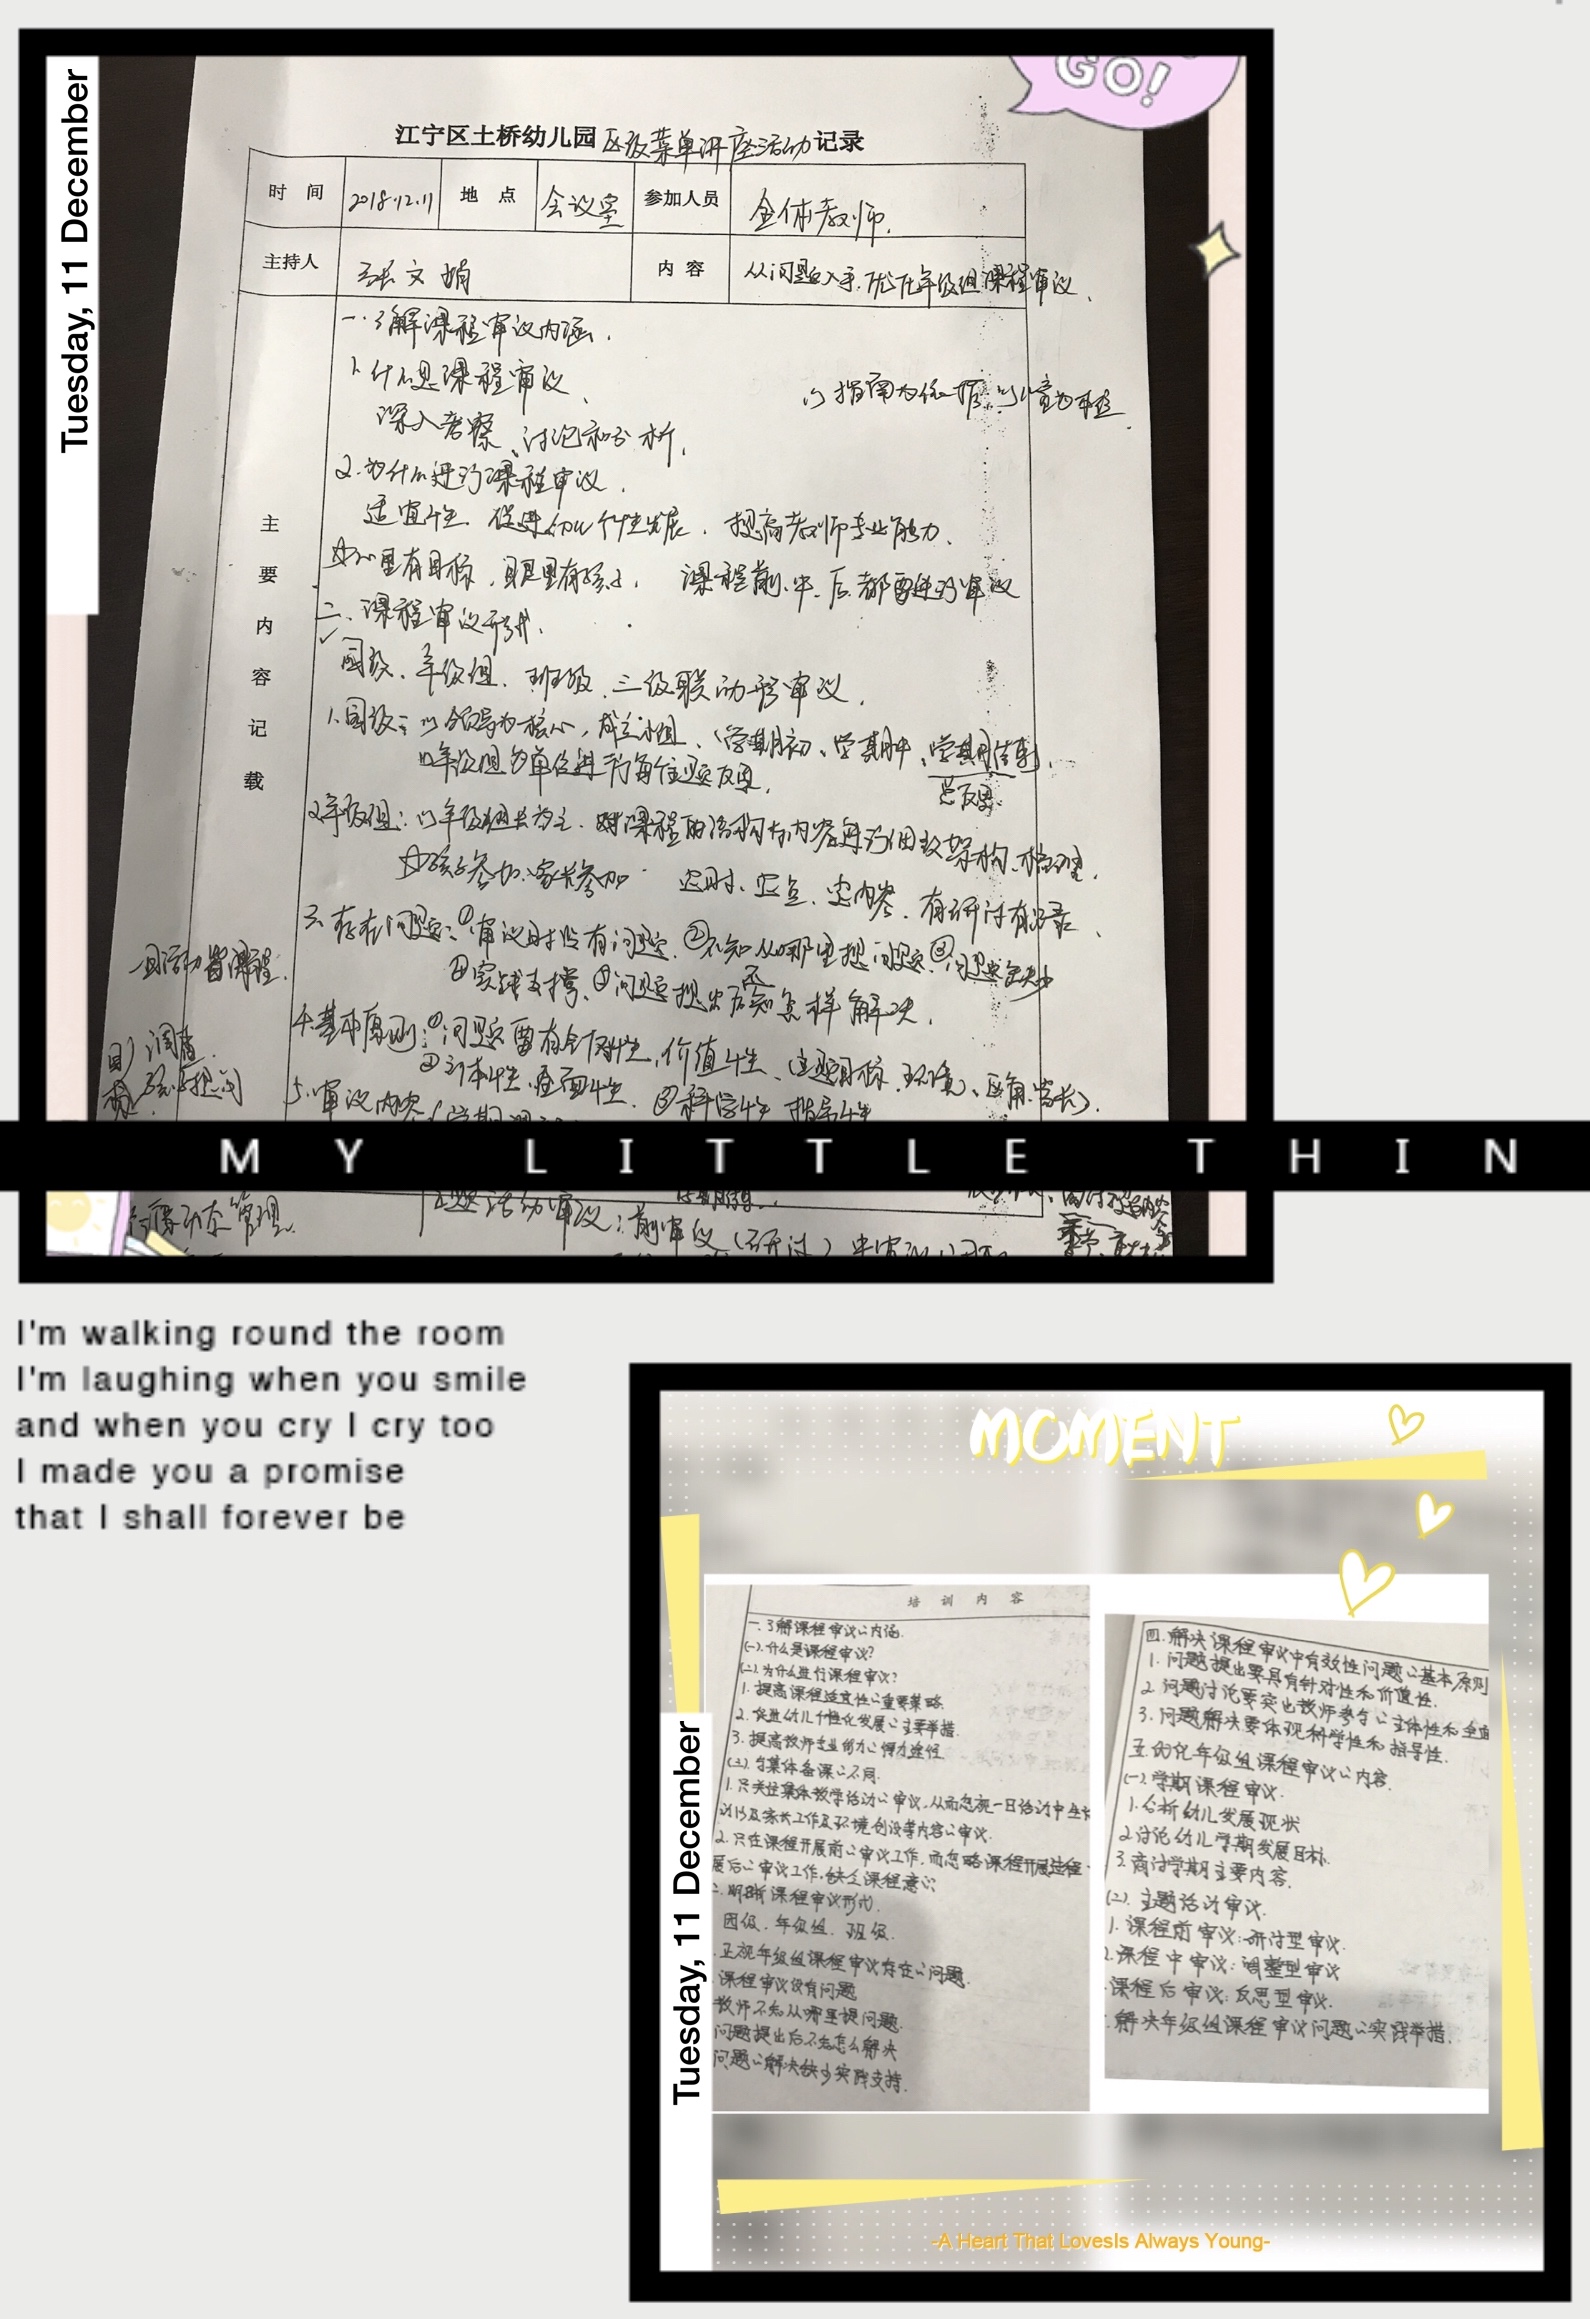 GO!
Tuesday, 11 December
江宁区土桥幼儿园 区级菜单讲座活动记录
时 间 2018.12.11 地 点 会议室 参加人员 全体教师.
主持人 张文娟 内 容 从问题入手,优化年级组课程审议.
主要内容记载
一.了解课程审议内涵.
1.什么是课程审议.
以指南为依据,以儿童为本位.
深入考察、讨论和分析.
2.为什么进行课程审议.
适宜性. 促进幼儿个性发展. 提高教师专业能力.
心里有目标,眼里有孩子. 课程前、中、后都要进行审议
二、课程审议形式.
园级、年级组、班级.三级联动形审议.
1.园级:以领导为核心,成立小组.(学期初、学期中、学期结束)
以年级组为单位进行每个主题反思.
总反思.
2.年级组:以年级组长为主.对课程的结构与内容进行细致架构、梳理.
孩子参加、家长参加 定时、定点、定内容.有研讨有记录.
三.存在问题:①审议时没有问题.②不知从哪里提问题.③问题缺少
实践支撑.④问题提出后不知怎样解决.
一日活动皆课程.
4.基本原则:①问题要有针对性,价值性.(主题目标、环境、区角、家长).
②主体性,全面性.③科学性 指导性
5.审议内容(学期课
MY LITTLE THIN
动态管理.
主题活动审议:前审议(研讨)
I'm walking round the room
I'm laughing when you smile
and when you cry I cry too
I made you a promise
that I shall forever be
MOMENT
Tuesday, 11 December
培 训 内 容
一.了解课程审议心内涵.
(一).什么是课程审议?
(二).为什么进行课程审议?
1.提高课程适宜性心重要策略.
2.促进幼儿个性化发展心主要举措.
3.提高教师专业能力心得力途径.
(三).与集体备课心不同.
1.只关注集体教学活动心审议,从而忽视一日活动中生活
动以及家长工作及环境创设等内容心审议.
2.只在课程开展前心审议工作,而忽略课程开展过程
展后心审议工作,缺乏课程意识
二.明晰课程审议形式.
园级.年级组.班级.
正视年级组课程审议存在心问题.
课程审议没有问题
教师不知从哪里提问题.
问题提出后不知怎么解决
问题心解决缺少实践支持.
四.解决课程审议中有效性问题心基本原则
1.问题提出要具有针对性和价值性.
2.问题讨论要突出教师参与心主体性和全面
3.问题解决要体现科学性和指导性.
五.优化年级组课程审议心内容.
(一).学期课程审议.
1.分析幼儿发展现状
2.讨论幼儿学期发展目标.
3.商讨学期主要内容.
(二).主题活动审议.
1.课程前审议:研讨型审议.
2.课程中审议:调整型审议
课程后审议:反思型审议.
解决年级组课程审议问题心实践举措.
-A Heart That LovesIs Always Young-